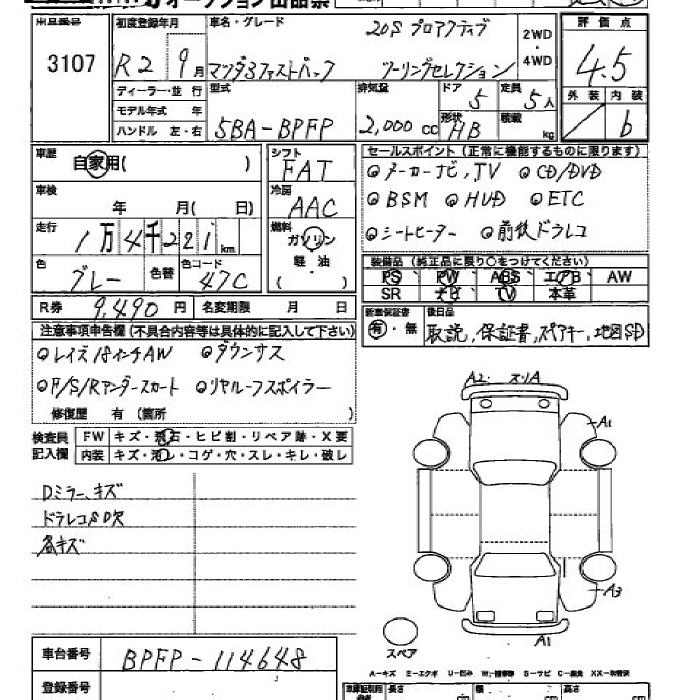 オークション出品票
出品番号 3107
初度登録年月 R2年 9月
車名・グレード 20S プロアクティブ
マツダ3ファストバック ツーリングセレクション
2WD・4WD
評価点 4.5
外装 内装 b
ディーラー・並行
モデル年式 年
ハンドル 左・右
型式 5BA-BPFP
排気量 2,000 cc
ドア 5
形状 HB
定員 5人
積載 kg
車歴 自家用( )
車検 年 月( 日)
走行 1万4千221km
色 グレー 色替 色コード 47C
シフト FAT
冷房 AAC
燃料 ガソリン
軽・油
( )
セールスポイント(正常に機能するものに限ります)
◎メーカーナビ,TV ◎CD/DVD
◎BSM ◎HUD ◎ETC
◎シートヒーター ◎前後ドラレコ
装備品(純正品に限り○をつけてください)
PS PW ABS エアB AW
SR ナビ TV 本革
R券 9,490円 名変期限 月 日
新車保証書 有・無
後日品 取説,保証書,スペアキー,地図SD
注意事項申告欄(不具合内容等は具体的に記入して下さい)
◎レイズ18インチAW ◎ダウンサス
◎F/S/Rアンダースカート ◎リヤルーフスポイラー
修復歴 有(箇所 )
検査員記入欄
FW キズ・飛石・ヒビ割・リペア跡・X要
内装 キズ・汚レ・コゲ・穴・スレ・キレ・破レ
Dミラーキズ
ドラレコSD欠
各キズ
A2 スリA
A1
A3
A1
スペア
車台番号 BPFP-114648
登録番号
A-キズ E-エクボ U-凹み W-補修跡 S-サビ C-腐食 XX-交換済
長さ cm 幅 cm 高さ cm